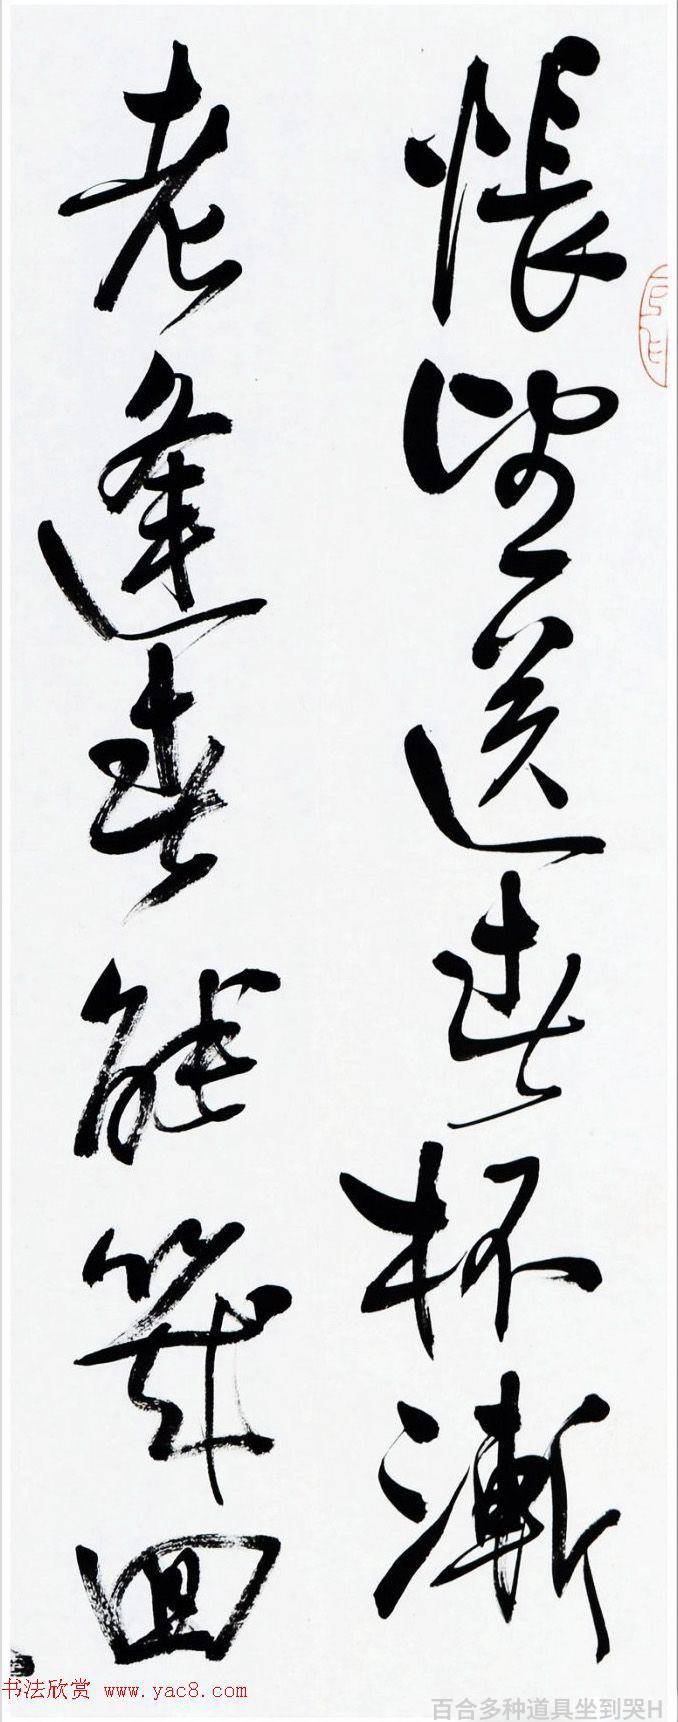 怅望送春杯渐
老逢春能几回
书法欣赏 www.yac8.com
百合多种道具坐到哭H